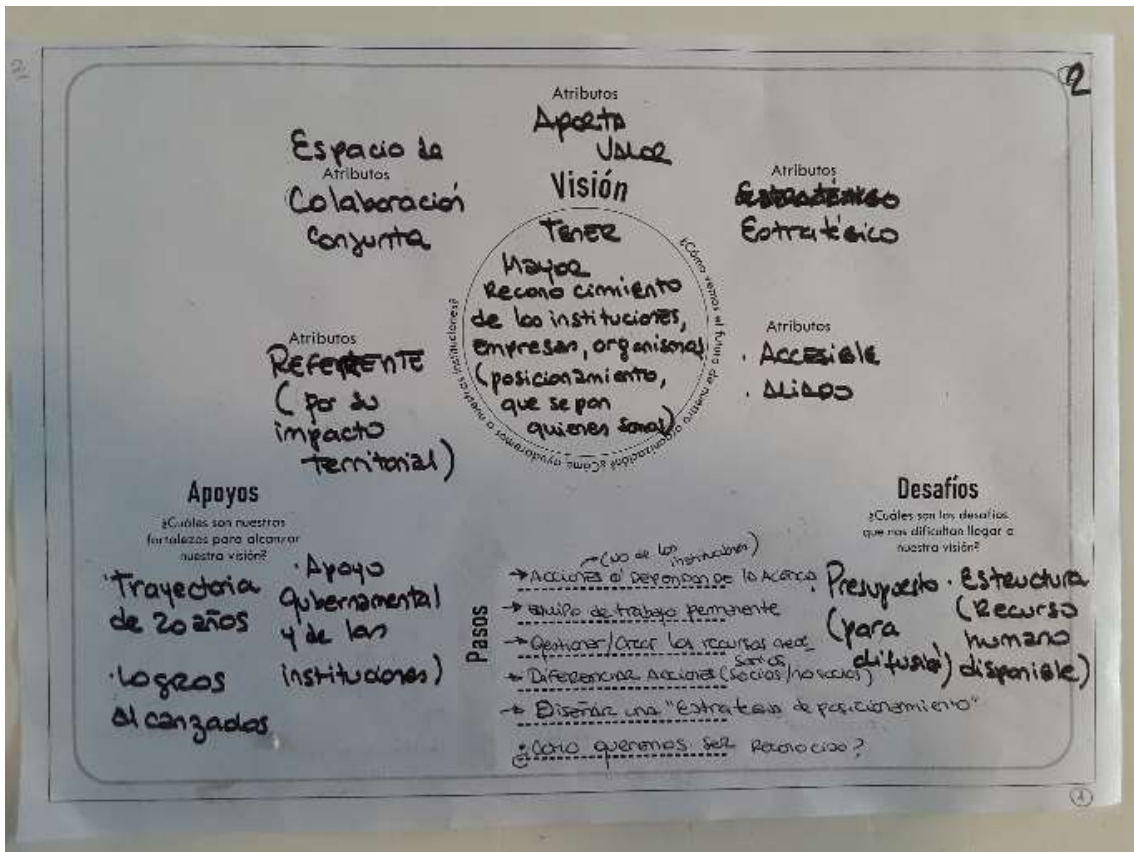 2
Atributos
Aporta
Valor
Espacio de
Atributos
Colaboración
Conjunta
Atributos
Estratégico
Visión
¿Cómo vemos el futuro de nuestra organización? ¿Cómo ayudaremos a nuestras instituciones?
Tener
Mayor
Reconocimiento
de las instituciones,
empresas, organismos
(posicionamiento,
que sepan
quienes somos)
Atributos
Referente
(por su
impacto
territorial)
Atributos
· Accesible
· Aliado
Apoyos
¿Cuáles son nuestras
fortalezas para alcanzar
nuestra visión?
· Trayectoria
de 20 años
· Logros
alcanzados
· Apoyo
gubernamental
y de las
instituciones)
Pasos
→ (no de las
instituciones)
→ Acciones q' dependan de la
→ Equipo de trabajo permanente
→ Gestionar/Crear los recursos nece
sarios
→ Diferenciar Acciones (socios/no socios)
→ Diseñar una "Estrategia de posicionamiento"
¿Cómo queremos ser reconocido?
Desafíos
¿Cuáles son los desafíos
que nos dificultan llegar a
nuestra visión?
Presupuesto
(para
difusión)
· Estructura
(Recurso
humano
disponible)